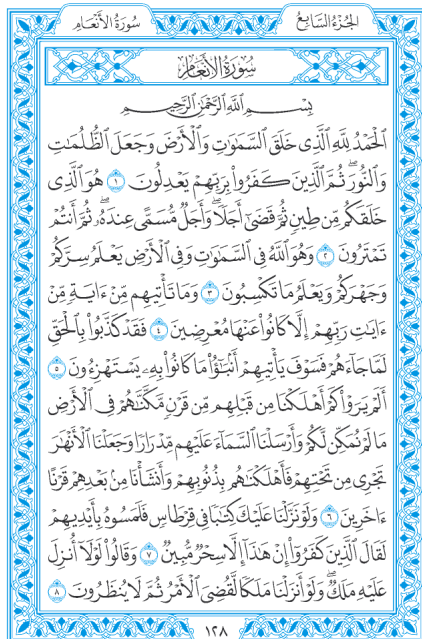 سُورَةُ الأَنْعَام
الجُزْءُ السَّابِعُ
سُورَةُ الأَنْعَامِ
بِسْمِ ٱللَّهِ ٱلرَّحْمَٰنِ ٱلرَّحِيمِ
ٱلْحَمْدُ لِلَّهِ ٱلَّذِى خَلَقَ ٱلسَّمَٰوَٰتِ وَٱلْأَرْضَ وَجَعَلَ ٱلظُّلُمَٰتِ
وَٱلنُّورَ ۖ ثُمَّ ٱلَّذِينَ كَفَرُوا۟ بِرَبِّهِمْ يَعْدِلُونَ ١ هُوَ ٱلَّذِى
خَلَقَكُم مِّن طِينٍ ثُمَّ قَضَىٰٓ أَجَلًا ۖ وَأَجَلٌ مُّسَمًّى عِندَهُۥ ۖ ثُمَّ أَنتُمْ
تَمْتَرُونَ ٢ وَهُوَ ٱللَّهُ فِى ٱلسَّمَٰوَٰتِ وَفِى ٱلْأَرْضِ ۖ يَعْلَمُ سِرَّكُمْ
وَجَهْرَكُمْ وَيَعْلَمُ مَا تَكْسِبُونَ ٣ وَمَا تَأْتِيهِم مِّنْ ءَايَةٍ مِّنْ
ءَايَٰتِ رَبِّهِمْ إِلَّا كَانُوا۟ عَنْهَا مُعْرِضِينَ ٤ فَقَدْ كَذَّبُوا۟ بِٱلْحَقِّ
لَمَّا جَآءَهُمْ ۖ فَسَوْفَ يَأْتِيهِمْ أَنۢبَٰٓؤُا۟ مَا كَانُوا۟ بِهِۦ يَسْتَهْزِءُونَ ٥
أَلَمْ يَرَوْا۟ كَمْ أَهْلَكْنَا مِن قَبْلِهِم مِّن قَرْنٍ مَّكَّنَّٰهُمْ فِى ٱلْأَرْضِ
مَا لَمْ نُمَكِّن لَّكُمْ وَأَرْسَلْنَا ٱلسَّمَآءَ عَلَيْهِم مِّدْرَارًا وَجَعَلْنَا ٱلْأَنْهَٰرَ
تَجْرِى مِن تَحْتِهِمْ فَأَهْلَكْنَٰهُم بِذُنُوبِهِمْ وَأَنشَأْنَا مِنۢ بَعْدِهِمْ قَرْنًا
ءَاخَرِينَ ٦ وَلَوْ نَزَّلْنَا عَلَيْكَ كِتَٰبًا فِى قِرْطَاسٍ فَلَمَسُوهُ بِأَيْدِيهِمْ
لَقَالَ ٱلَّذِينَ كَفَرُوٓا۟ إِنْ هَٰذَآ إِلَّا سِحْرٌ مُّبِينٌ ٧ وَقَالُوا۟ لَوْلَآ أُنزِلَ
عَلَيْهِ مَلَكٌ ۖ وَلَوْ أَنزَلْنَا مَلَكًا لَّقُضِىَ ٱلْأَمْرُ ثُمَّ لَا يُنظَرُونَ ٨
١٢٨